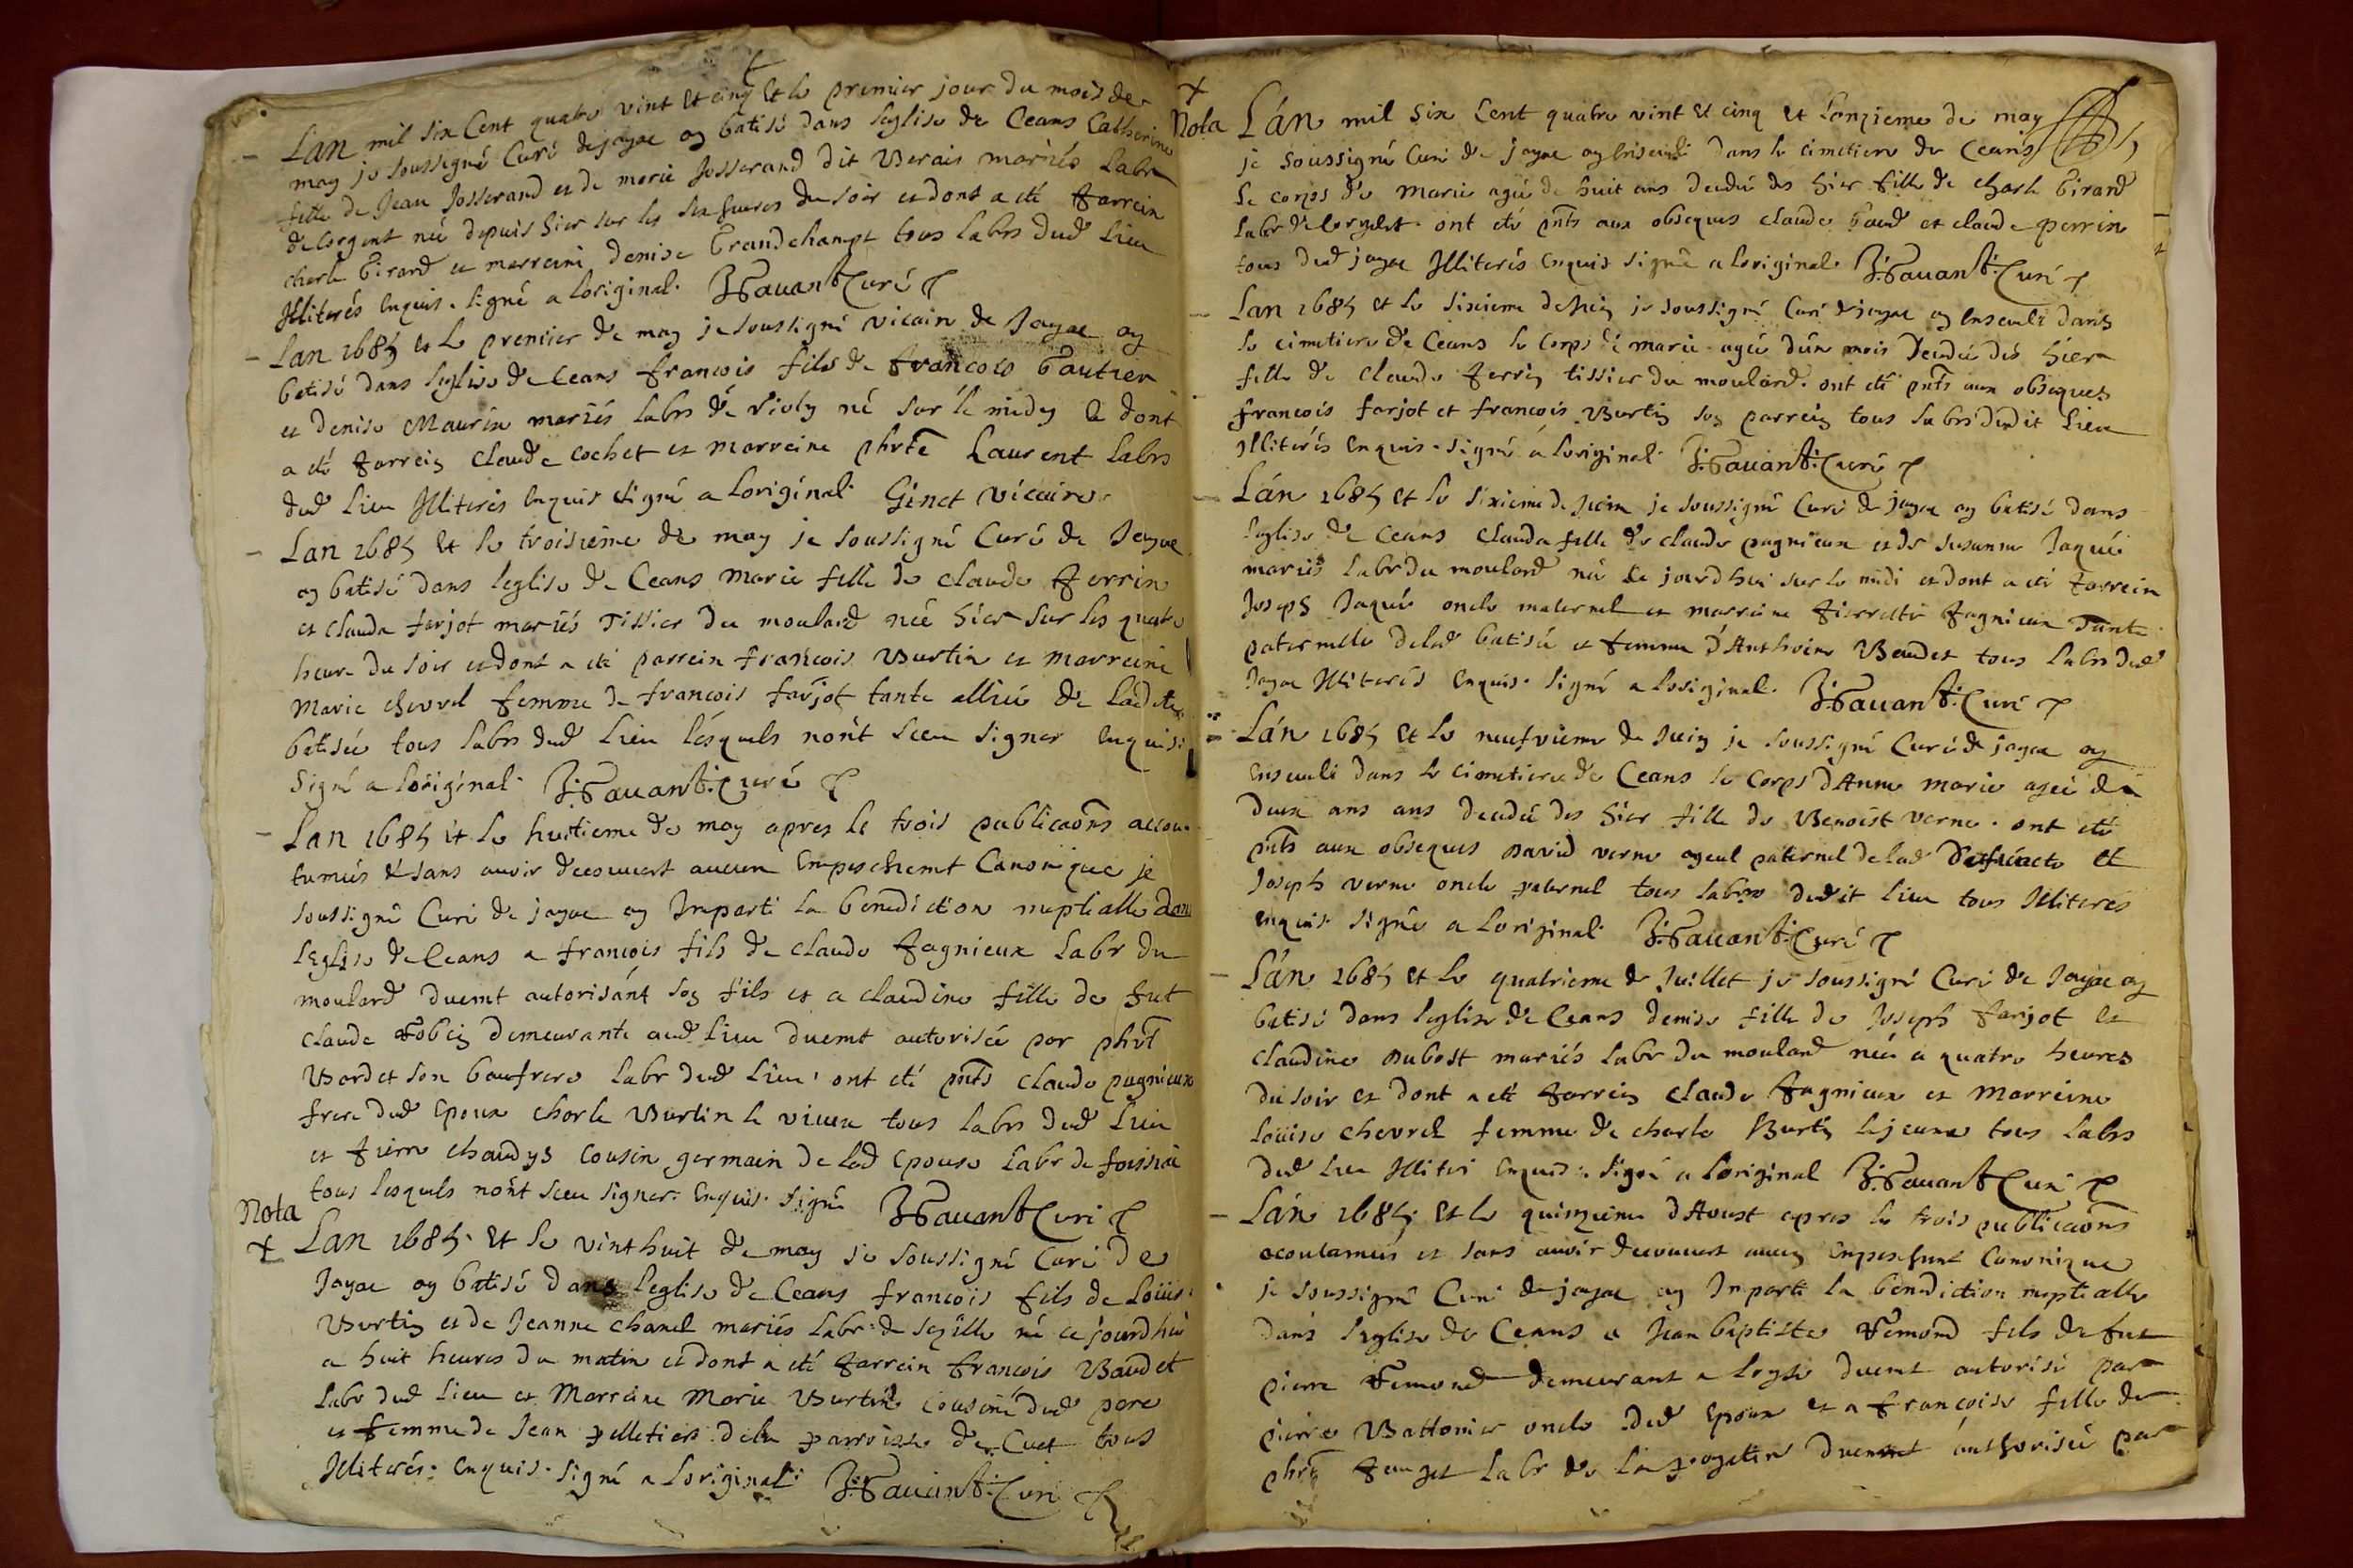 Lan mil six Cent quatre vint et cinq et le premier jour du mois de
may je soussigné Curé de jayac ay batisé dans leglise de Ceans Catherine
fille de Jean Josserand et de marie Josserand dit Verais mariés labr
de née depuis hier sur les six heures du soir et dont a eté parrein
charle Girard et marreini denise Grandchamp tous labrs dud lieu
Illiterés enquis. signé a loriginal. Favant Curé
Lan 1685 et le premier de may je soussigné vicaire de Jayac ay
batisé dans leglise de Ceans francois fils de francois Gautier
et denise Maurin mariés labrs de né sur le midy et dont
a eté parrein claude cochet et marreine phrte Laurent labrs
dud lieu Illiterés enquis signé a loriginal Ginet vicaire
Lan 1685 et le troisieme de may je soussigné Curé de Jayac
ay batisé dans leglise de Ceans marie fille de claude perrin
et clauda farjot mariés Tissier du moulard née hier sur les quatre
heure du soir et dont a eté parrein francois Burtin et marreine
Marie chevrel femme de francois farjot tante alliée de ladite
batisée tous labrs dud lieu lesquels nont sceu signer enquis.
Signé a loriginal. Favant Curé
Lan 1685 et le huitieme de may apres le trois publicaons accou
tumées et sans avoir decouvert aucun Empeschemt Canonique je
soussigné Curé de jayac ay Imparti la benediction nuptialle dans
leglise de Ceans a francois fils de claude pagnieux labr du
moulard duemt autorisant son fils et a claudine fille de fut
claude demeurante aud lieu duemt autorisée par phrt
Bordet son baufrere labr dud lieu. ont eté pnts claude pagnieux
frere dud Epoux charle Burtin le vieux tous labrs dud lieu
et pierre cousin germain de lad epouse labr de foissiat
tous lesquels nont sceu signer. enquis. signé Favant Curé
Nota
Lan 1685. et le vinthuit de may je soussigné Curé de
Jayac ay batisé dans leglise de Ceans francois fils de Loüis
Burtin et de Jeanne chanel mariés labr de né ce jourdhui
a huit heures du matin et dont a eté parrein francois Baudet
labr dud lieu et Marreine Marie Burtin cousine dud pere
et femme de Jean pelletier dela parroisse de Cuet tous
Illiterés. enquis. signé a loriginal. Favant Curé
Nota Lan mil six Cent quatre vint et cinq et lonzieme de may
je soussigné Curé de jayac ay enseveli dans le cimetiere de Ceans
le corps de marie agée de huit ans decedée des hier fille de charle Girard
labr de ont eté pnts aux obseques claude et claude perrin
tous dud jayac Illiterés enquis signé a loriginal. Favant Curé
Lan 1685 et le sixieme de juin je soussigné Curé de jayac ay enseveli dans
le cimetiere de Ceans le corps de marie agée dun mois decedée dés hier
fille de claude perrin tissier du moulard. ont eté pnts aux obseques
francois farjot et francois Burtin son parrein tous labrs dudit lieu
Illiterés enquis. signé a loriginal. Favant Curé
Lan 1685 et le sixieme de juin je soussigné Curé de jayac ay batisé dans
leglise de Ceans clauda fille de claude pagnieux et de susanne Jaquée
mariés labr du moulard née ce jourdhui sur le midi et dont a eté parrein
Joseph Jaquée oncle maternel et marreine pierrette pagnieux tante
paternelle delad batisée et femme dAnthoine Baudet tous labrs dud
Jayac Illiterés enquis. signé a loriginal. Favant Curé
Lan 1685 et le neufvieme de juin je soussigné Curé de jayac ay
enseveli dans le cimetiere de Ceans le corps dAnne marie agée de
deux ans ans decedée des hier fille de Benoist verne. ont eté
pnts aux obseques david verne ayeul paternel delad defuncte et
Joseph verne oncle paternel tous labrs dudit lieu tous Illiterés
enquis signé a loriginal. Favant Curé
Lan 1685 et le quatrieme de Juillet je soussigné Curé de Jayac ay
batisé dans leglise de Ceans denise fille de Joseph farjot et
claudine dubost mariés labr du moulard née a quatre heures
du soir et dont a eté parrein claude pagnieux et Marreine
Loüise chevrel femme de charle Burtin lejeune tous labrs
dud lieu enquis. signé a loriginal Favant Curé
Lan 1685 et le quinzieme dAoust apres le trois publicaons
acoutumées et sans avoir decouvert aucun Canonique
je soussigné Curé de jayac ay Imparti la benediction nuptialle
dans leglise de Ceans a Jean baptiste fils de fut
pierre demeurant a duemt autorisé par
pierre oncle dud Epoux et a francoise fille de
phrt labr de duement authorisée par